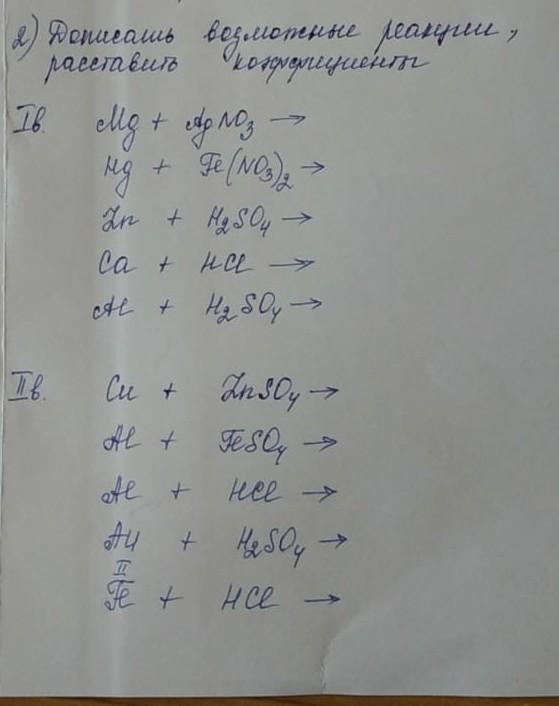 2) Дописать возможные реакции,
расставить коэффициенты
Iв. Mg + AgNO₃ →
Hg + Fe(NO₃)₂ →
Zn + H₂SO₄ →
Ca + HCl →
Al + H₂SO₄ →
IIв. Cu + ZnSO₄ →
Al + FeSO₄ →
Al + HCl →
Au + H₂SO₄ →
II
Fe + HCl →